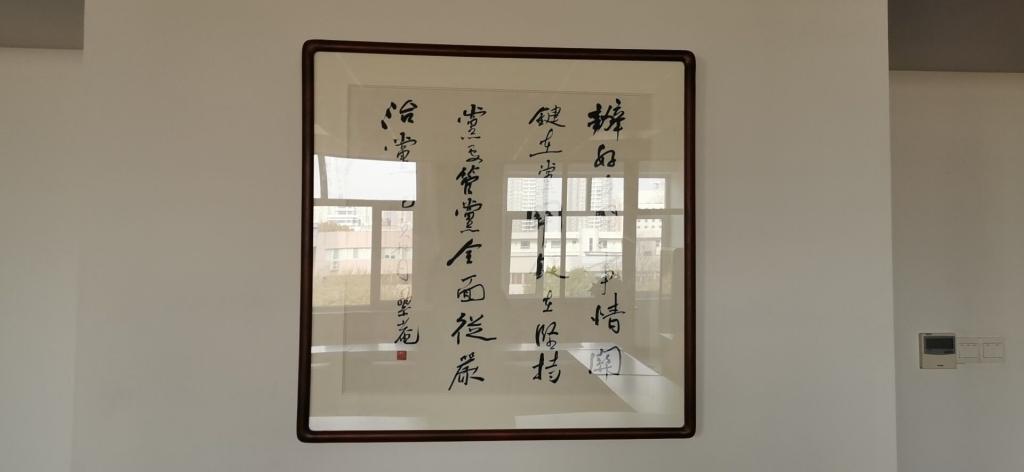 辦好事情關
鍵在黨關在堅持
黨要管黨全面從嚴
治黨